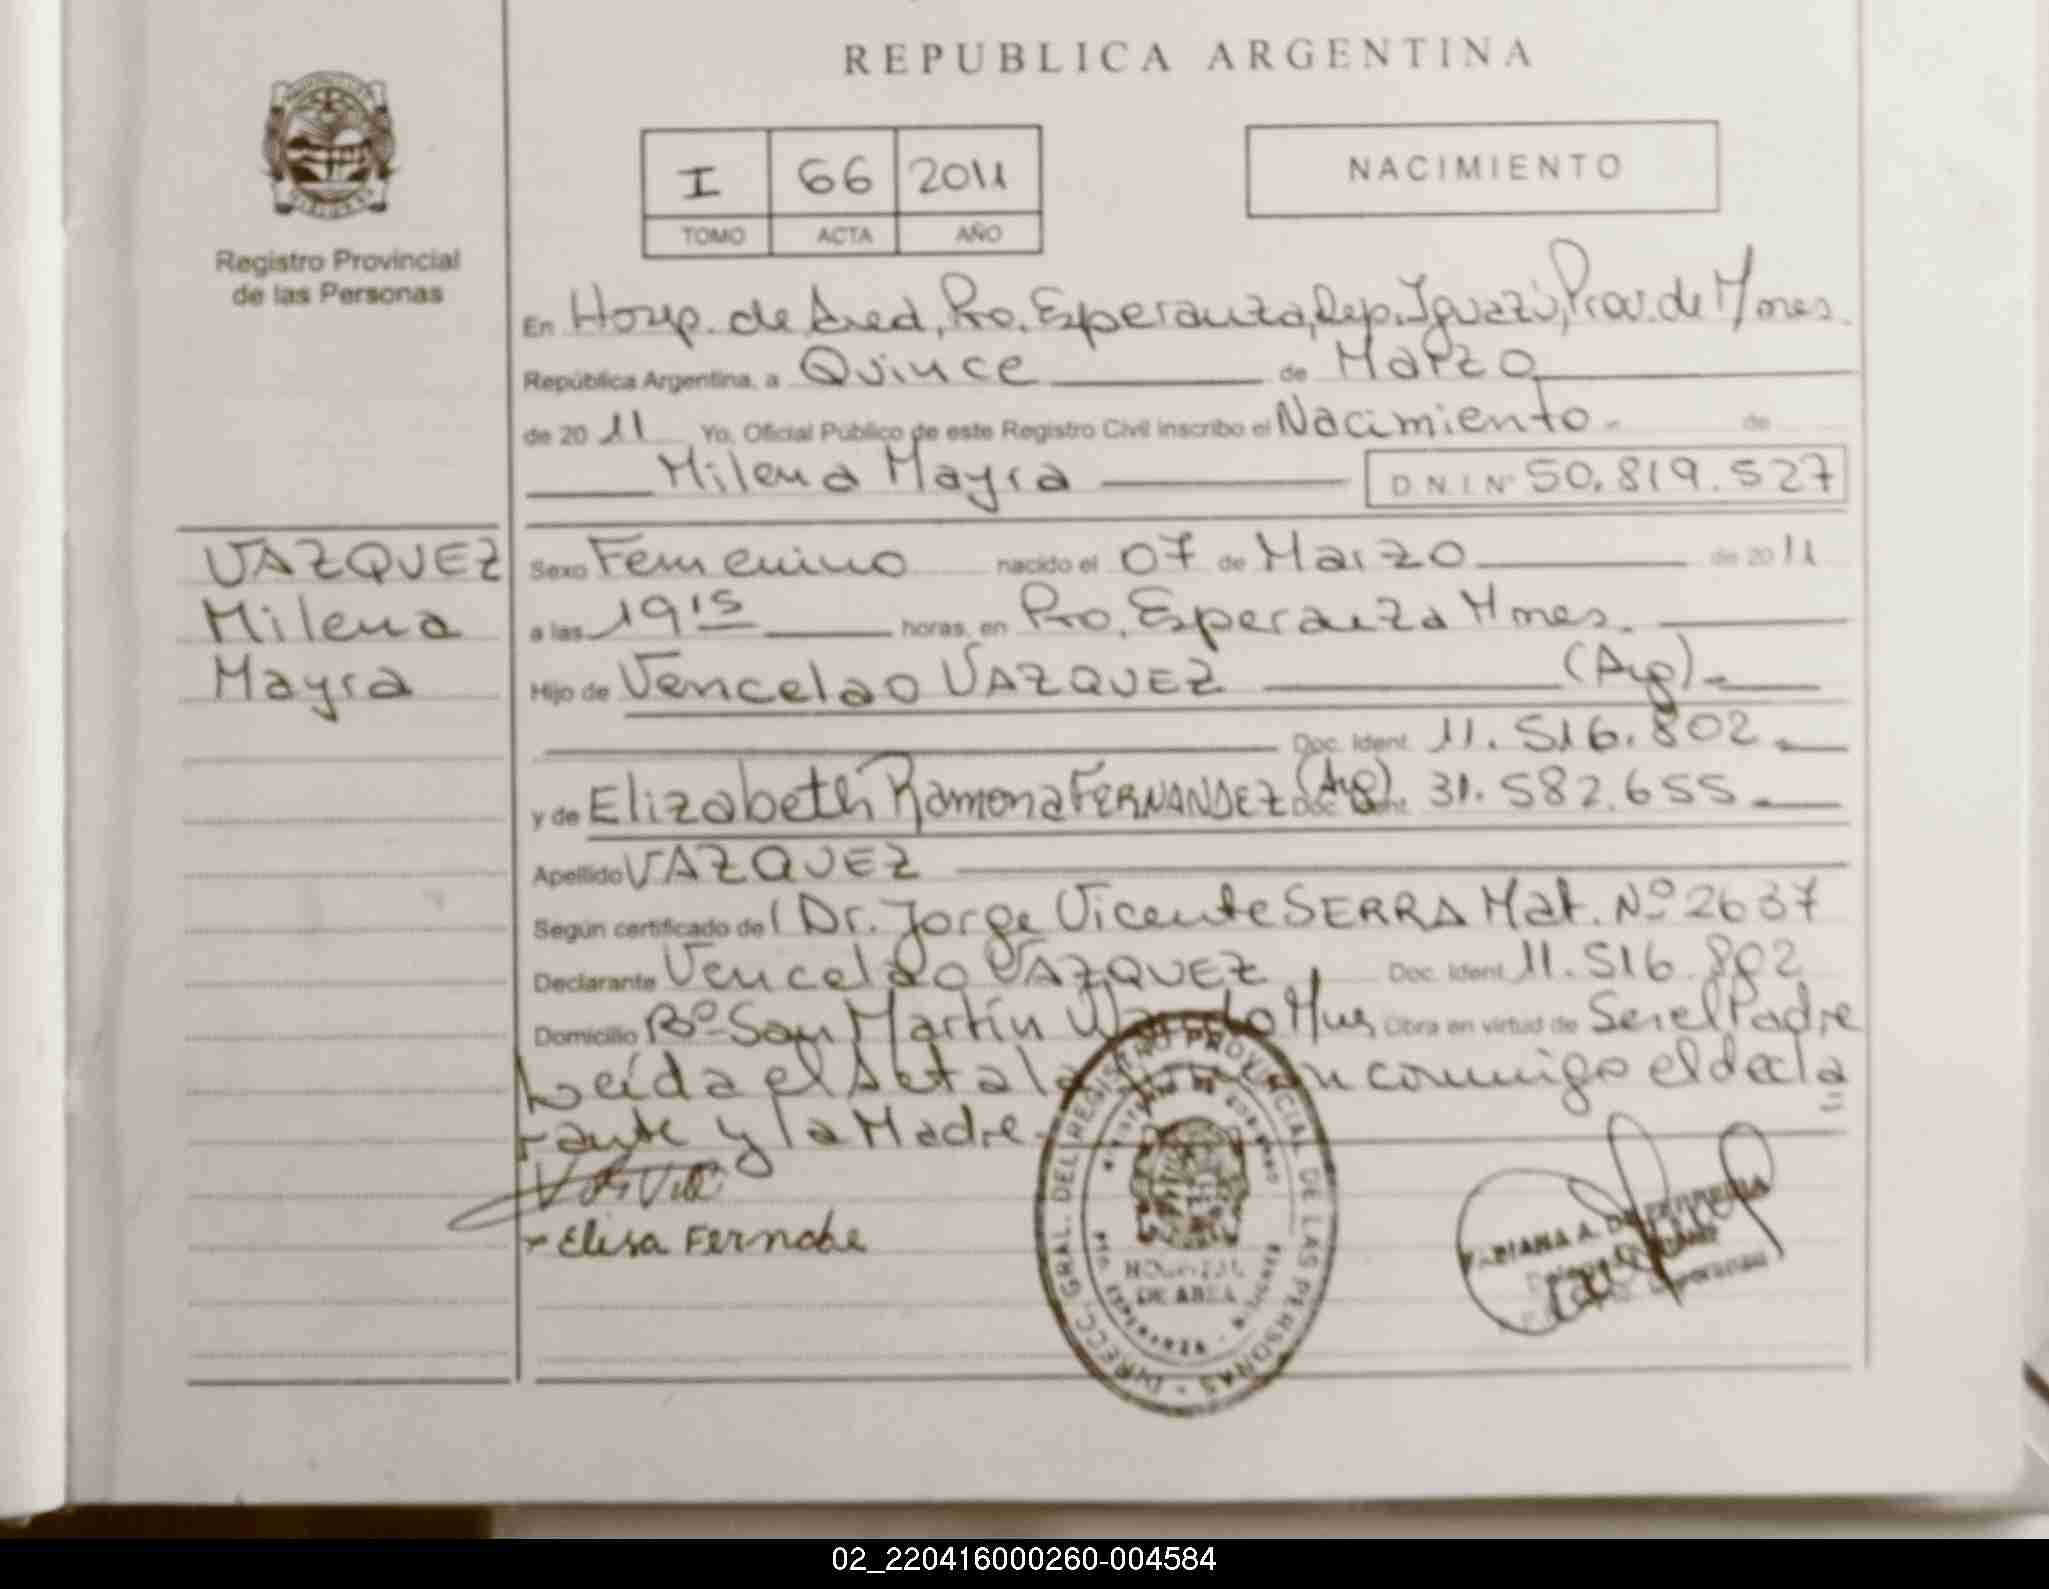 REPUBLICA ARGENTINA
I 66 2011
TOMO ACTA AÑO
NACIMIENTO
Registro Provincial
de las Personas
En Hosp. de Area, Pto. Esperanza, Dep. Iguazú, Prov. de Mnes.
República Argentina, a Quince de Marzo
de 20 11 Yo, Oficial Público de este Registro Civil inscribo el Nacimiento.- de
Milena Mayra D.N.I. Nº 50.819.527
VAZQUEZ
Milena
Mayra
Sexo Femenino nacido el 07 de Marzo de 20 11
a las 19 15 horas, en Pto. Esperanza Mnes.
Hijo de Vencelao VAZQUEZ (Arg).-
Doc. Ident. 11.516.802.-
y de Elizabeth Ramona FERNANDEZ (Arg). 31.582.655.-
Apellido VAZQUEZ
Según certificado del Dr. Jorge Vicente SERRA Mat. Nº 2637
Declarante Vencelao VAZQUEZ Doc. Ident. 11.516.802
Domicilio Bº San Martín Obra en virtud de Ser el Padre
Leída el Acta la conmigo el decla
rante y la Madre.
Elisa Fernabe
DIRECC. GRAL. DEL REGISTRO PROVINCIAL DE LAS PERSONAS
HOSPITAL
DE AREA
FABIANA A.
02_220416000260-004584